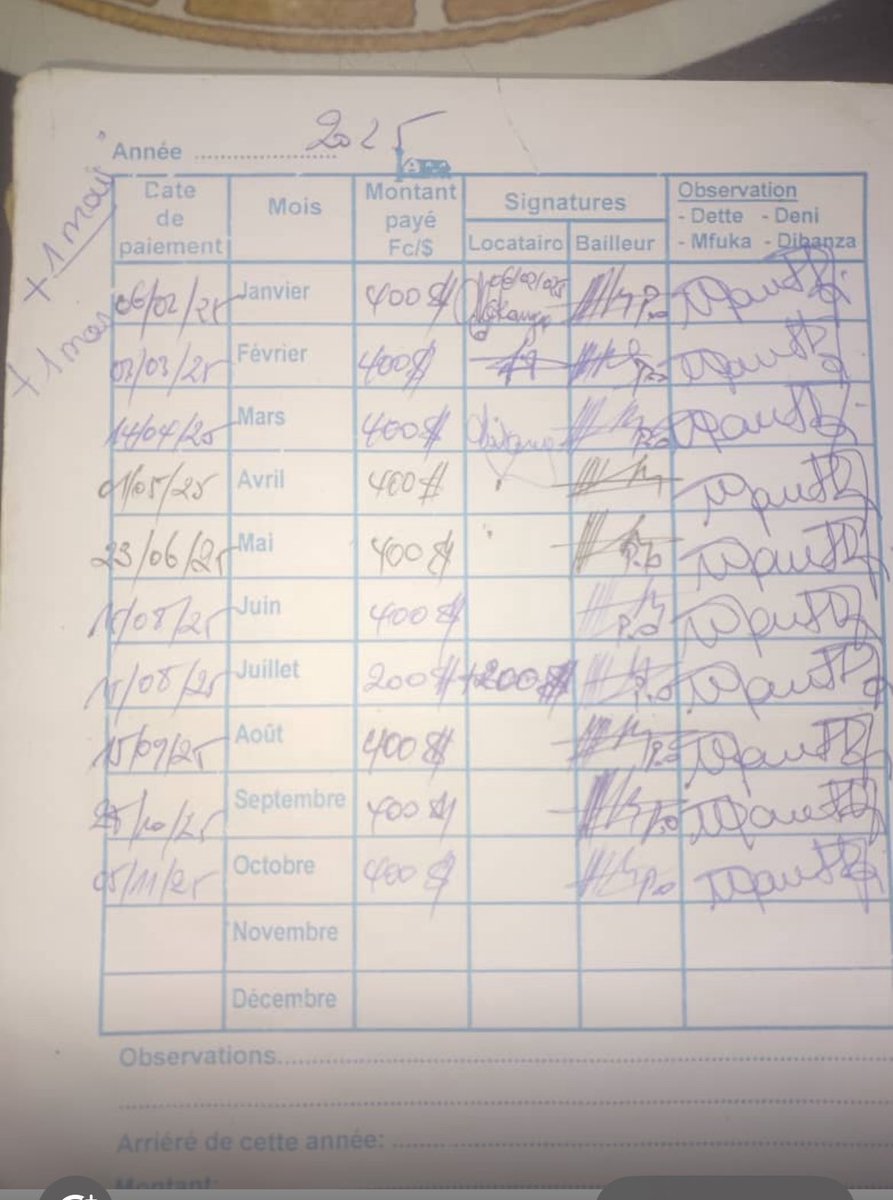 Année .................... 2025
+ 1 mois
+ 1 mois
Date de paiement Mois Montant payé Fc/$ Signatures Observation
Locataire Bailleur - Dette - Deni
- Mfuka - Dibanza
06/02/25 Janvier 400$ 06/02/025
Février 400$
14/04/25 Mars 400$
01/05/25 Avril 400$
23/06/25 Mai 400$ P.o
15/08/25 Juin 400$ P.o
15/08/25 Juillet 200$ +200$ P.o
15/09/25 Août 400$ P.o
28/10/25 Septembre 400$ P.o
05/11/25 Octobre 400$ P.o
Novembre
Décembre
Observations..........
Arriéré de cette année: ..........
Montant: